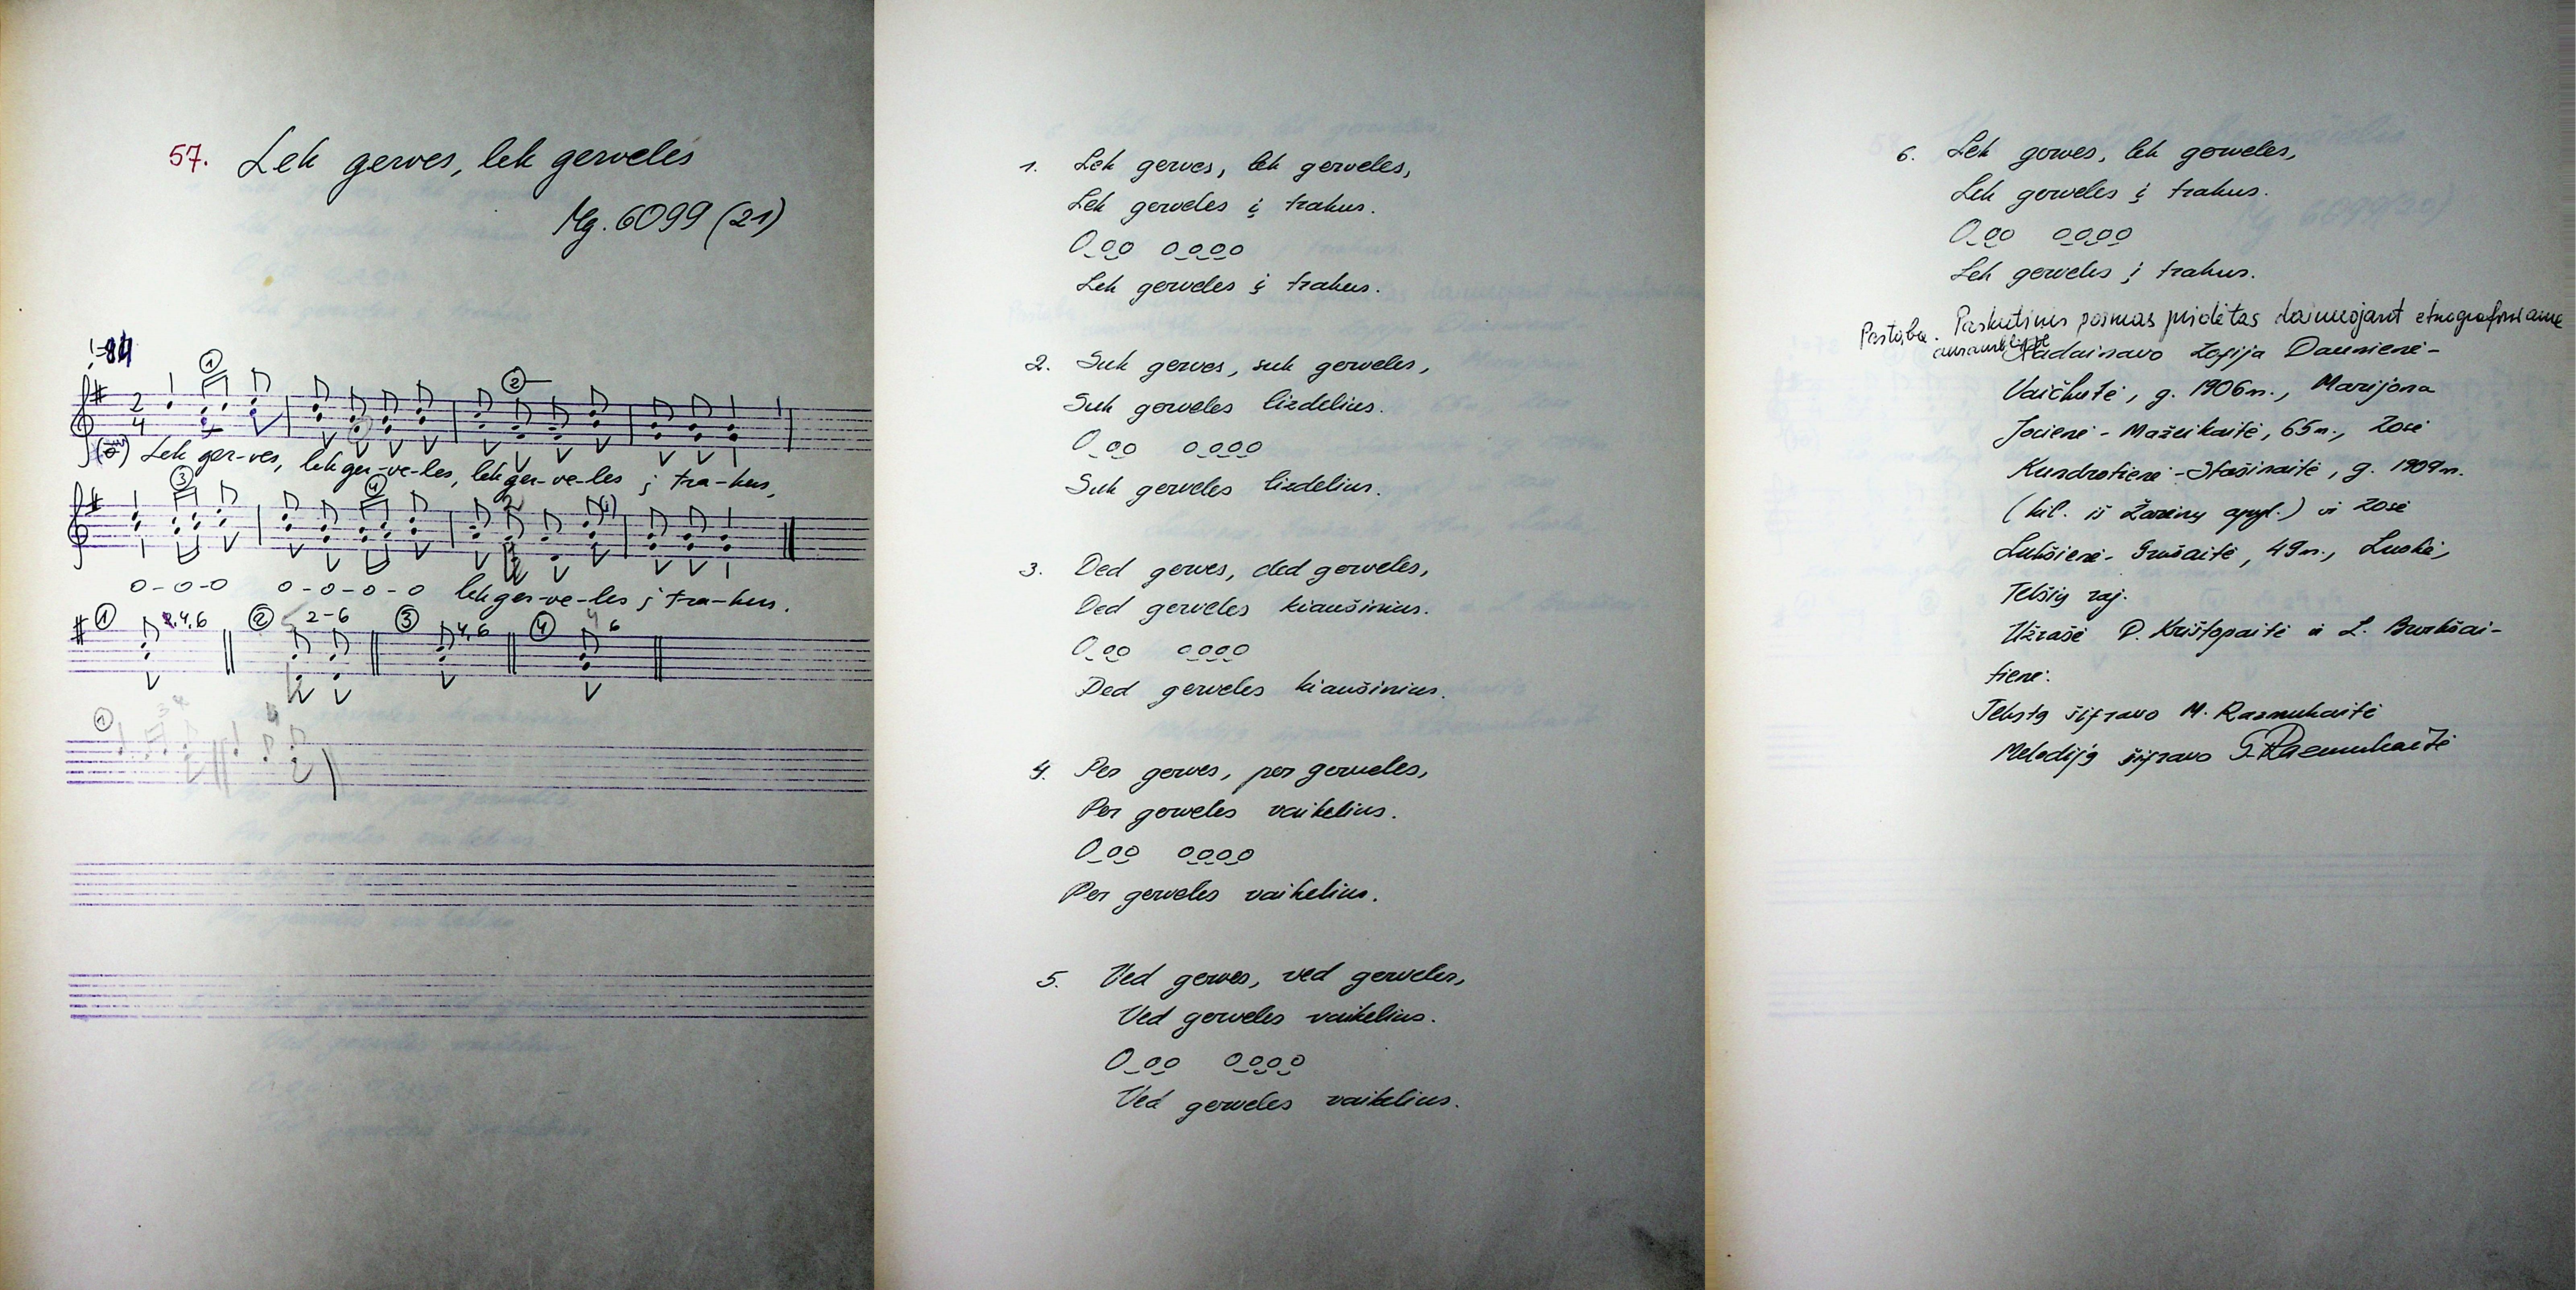 57. Lek gerves, lek gervelės
Mg. 6099 (21)
2
4
Lek ger-ves, lek ger-ve-les, lek ger-ve-les į tra-kus,
o-o-o o-o-o-o lek ger-ve-les į tra-kus.
1 2,4,6 2 2-6 3 4,6 4 6
1.
Lek gerves, lek gerveles,
Lek gerveles į trakus.
O_o_o o_o_o_o
Lek gerveles į trakus.
2.
Suk gerves, suk gerveles,
Suk gerveles lizdelius.
O_o_o o_o_o_o
Suk gerveles lizdelius.
3.
Ded gerves, ded gerveles,
Ded gerveles kiaušinius.
O_o_o o_o_o_o
Ded gerveles kiaušinius.
4.
Per gerves, per gerveles,
Per gerveles vaikelius.
O_o_o o_o_o_o
Per gerveles vaikelius.
5.
Ved gerves, ved gerveles,
Ved gerveles vaikelius.
O_o_o o_o_o_o
Ved gerveles vaikelius.
6.
Lek gerves, lek gerveles,
Lek gerveles į trakus.
O_o_o o_o_o_o
Lek gerveles į trakus.
Pastaba. Paskutinis posmas pridėtas dainuojant etnografiniame
ansamblyje
Padainavo Zofija Daunienė-
Vaičkutė, g. 1906 m., Marijona
Jocienė - Mažeikaitė, 65 m., Zosė
Kundrotienė - Stašinaitė, g. 1909 m.
(kil. iš Žarėnų apyl.) ir Zosė
Lukšienė - Grušaitė, 49 m., Luokė,
Telšių raj.
Užrašė D. Krištopaitė ir L. Burkšai-
tienė.
Tekstą šifravo M. Razmukaitė
Melodiją šifravo G. Razmukaitė